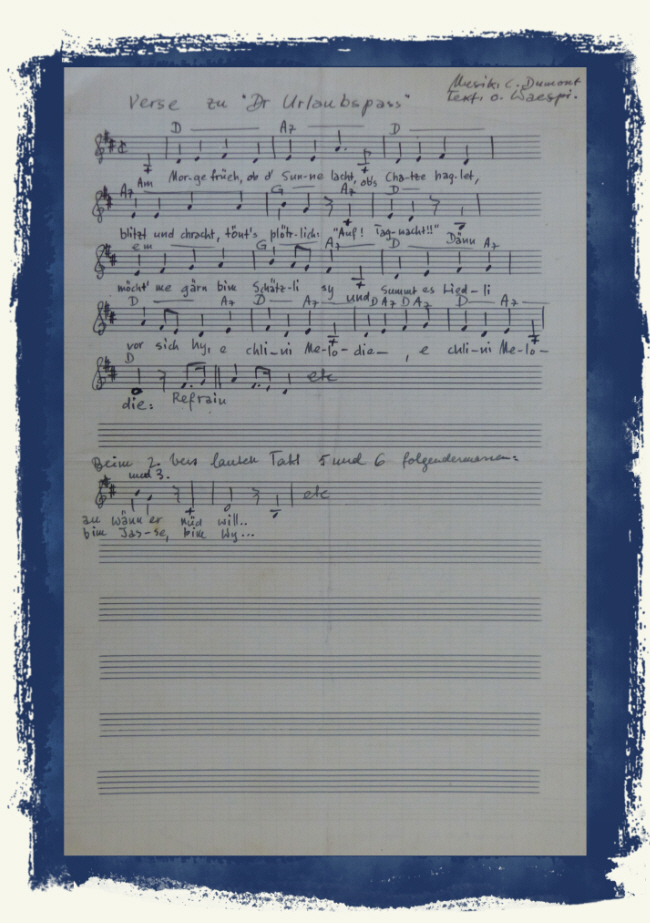 Musik: C. Dumont
Text: O. Waespi.
Verse zu "Dr Urlaubspass"
D A7 D
Mor-ge früeh, ob d' Sun-ne lacht, ob's Cha-tze hag-let,
A7 Am G A7 D
blitzt und chracht, tönt's plötz-lich: "Auf! Tag-wacht!!" Dänn
em G A7 D A7
möcht' me gärn bim Schätz-li sy und summt es Lied-li
D A7 D A7 D A7 D A7 D A7
vor sich hy, e chli-ni Me-lo-die- , e chli-ni Me-lo-
D etc
die: Refrain
Beim 2. Vers lauten Takt 5 und 6 folgendermassen:
und 3.
etc
au wänn er nüd will..
bim Jas-se, bim Wy...